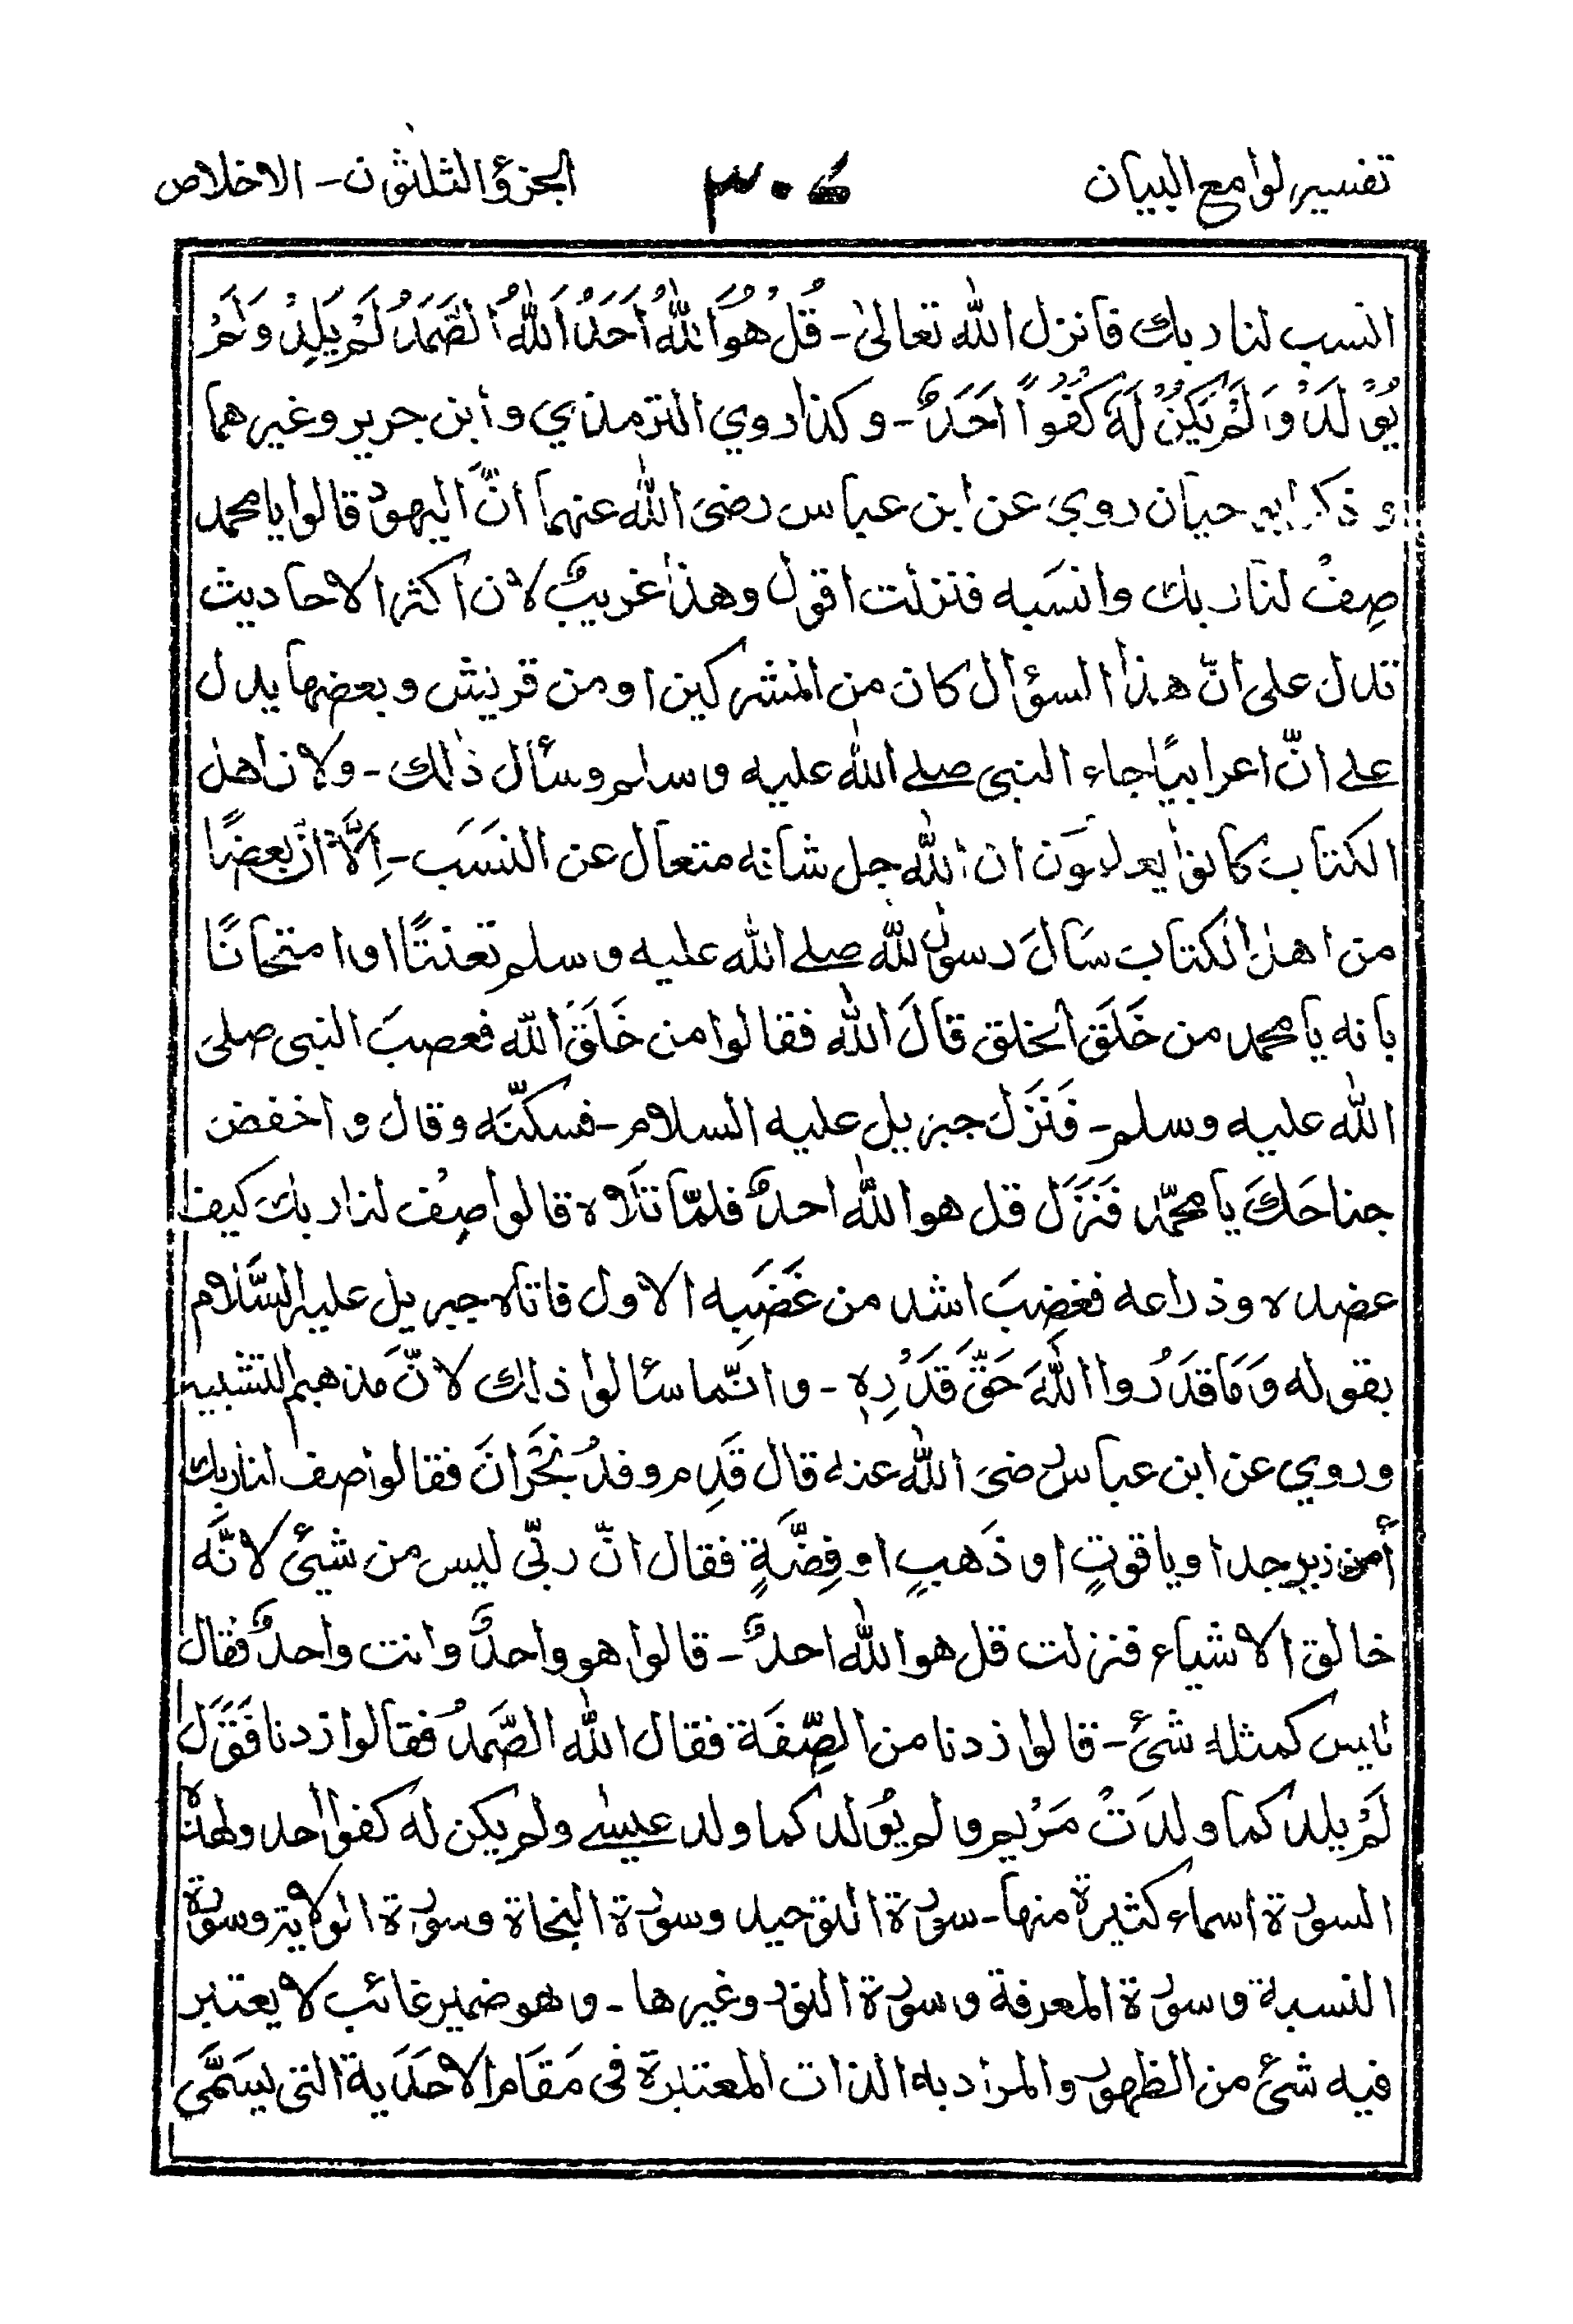 تفسير لوامع البيان ٣٠٤ الجزؤ الثلثون - الاخلاص
انسب لنا ربك فانزل الله تعالىٰ - قُلْ هُوَ اللّٰهُ أَحَدٌ اَللّٰهُ الصَّمَدُ لَمْ يَلِدْ وَلَمْ
يُوْلَدْ وَلَمْ يَكُنْ لَهٗ كُفُوًا اَحَدٌ - وكذا روي الترمذي وابن جرير وغيرهما
وذكر ابو حيان روي عن ابن عباس رضى الله عنهما انّ اليهود قالوا يا محمد
صِفْ لنا ربك وانسَبه فنزلت اقول وهذا غريبٌ لان اكثر الاحاديث
تدل على انّ هذا السؤال كان من المشركين او من قريش وبعضها يدل
على انّ اعرابيًا جاء النبى صلى الله عليه وسلم وسأل ذٰلك - ولان اهل
الكتاب كانوا يعلمون ان اللّٰه جل شانه متعال عن النسَب - اِلَّا انّ بعضًا
من اهل الكتاب سَالَ رسول اللّٰه صلى الله عليه وسلم تعنتًا او امتحانًا
بانه يا محمد من خَلَقَ الخلق قالَ اللّٰه فقالوا من خَلَقَ اللّٰه فعصبَ النبى صلى
الله عليه وسلم - فَنَزَلَ جبريل عليه السلام - فسكّنَه وقال واخفض
جناحَكَ يا محمّد فَنَزَلَ قل هو اللّٰه احدٌ فلمّا تلاه قالوا صِفْ لنا ربك كيف
عضده وذراعه فغضِبَ اشد من غَضَبِه الاول فاتاه جبريل عليه السَّلام
بقوله وَمَا قَدَرُوا اللّٰهَ حَقَّ قَدْرِهٖ - وانّما سئالوا ذلك لانّ مذهبهم التشبيه
وروي عن ابن عباس رضى اللّٰه عنه قال قَدِم وفدُ نَجْرَانَ فقالوا صف لنا ربك
أمن زبرجد او ياقوتٍ او ذَهبٍ او فِضَّةٍ فقال انّ ربّى ليس من شيئ لانَّه
خالق الاشياء فنزلت قل هو اللّٰه احدٌ - قالوا هو واحدٌ وانت واحدٌ فقال
ليس كمثله شئ - قالوا زدنا من الصِّفَة فقال اللّٰه الصَّمدُ فقالوا زدنا فَنَزَلَ
لَمْ يلد كما ولدَتْ مَرْيم ولم يُوْلد كما ولد عيسى ولم يكن له كفوا احد ولهذه
السورة اسماء كثيرة منها - سورة التوحيد وسورة النجاة وسورة الولاية وسورة
النسبة وسورة المعرفة وسورة النور وغيرها - وهو ضمير غائب لا يعتبر
فيه شئ من الظهور والمراد به الذات المعتبرة فى مَقَام الاحَدَية التى يسَمَّى